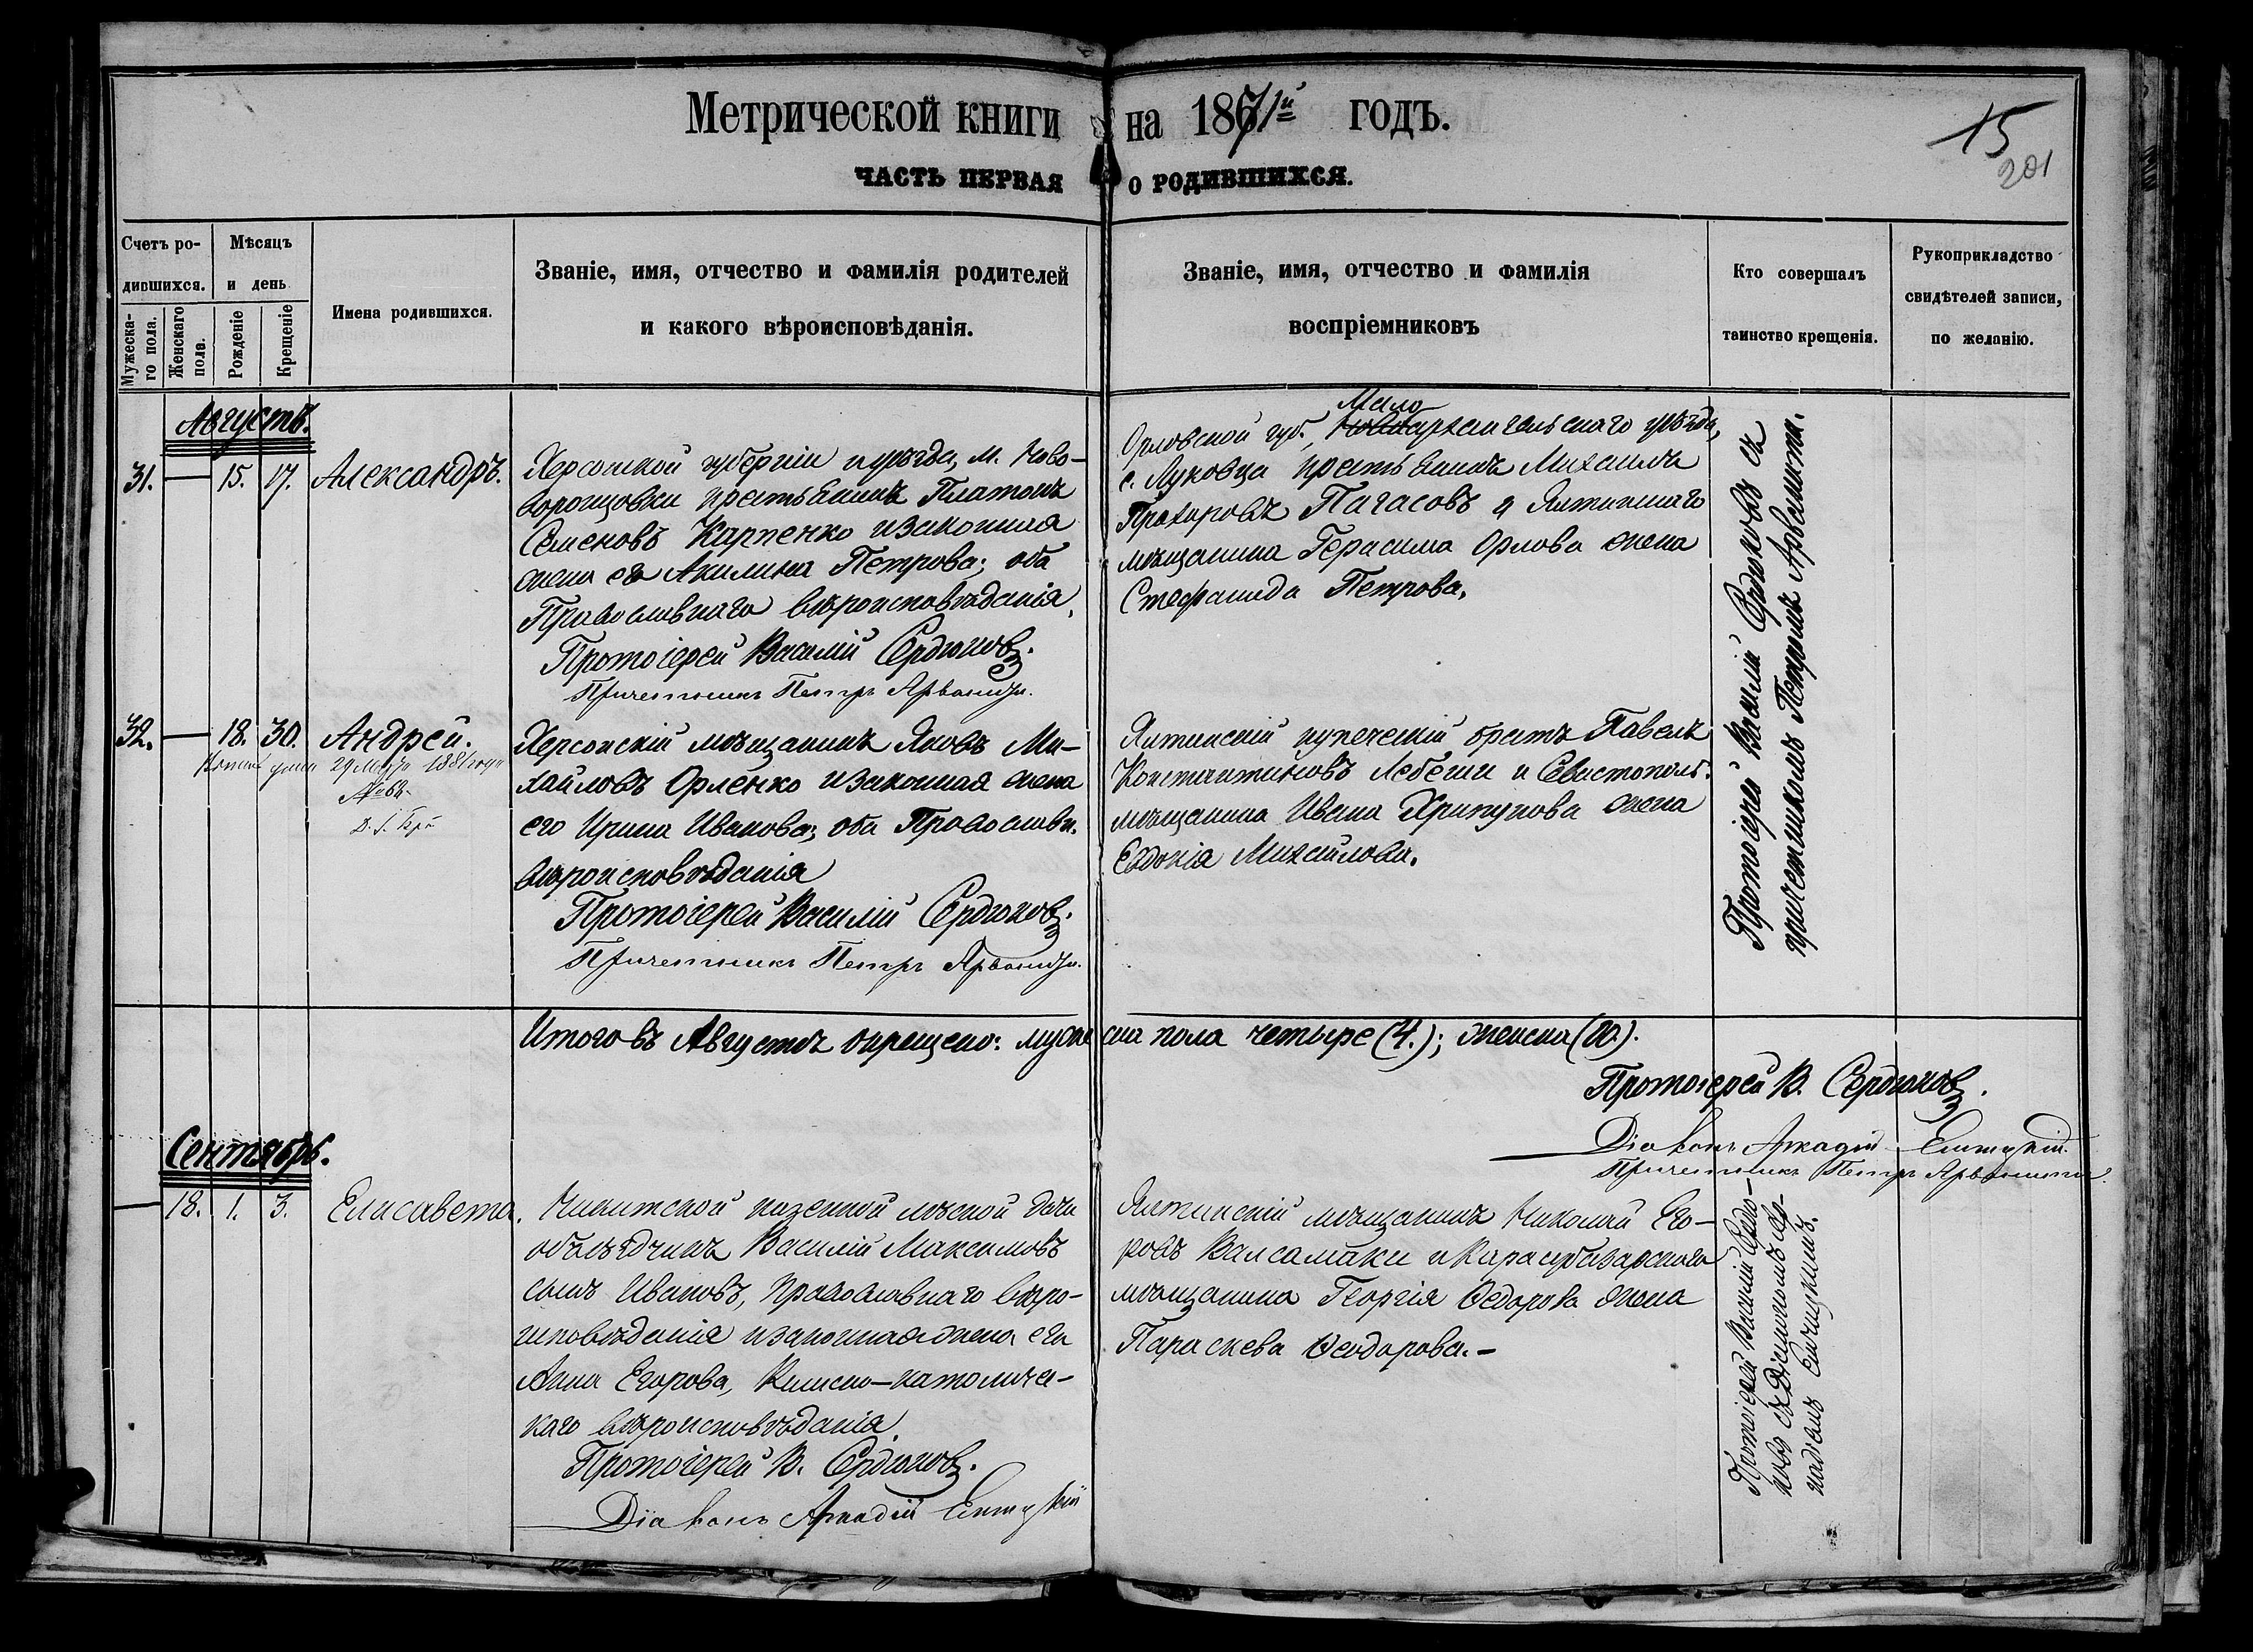 Метрической книги на 1871й годъ.
15
201
ЧАСТЬ ПЕРВАЯ О РОДИВШИХСЯ.
Счетъ ро-
дившихся.
Мужеска-
го пола.
Женскаго
пола.
Мѣсяцъ
и день
Рожденіе
Крещеніе
Имена родившихся.
Званіе, имя, отчество и фамилія родителей
и какого вѣроисповѣданія.
Званіе, имя, отчество и фамилія
воспріемниковъ
Кто совершалъ
таинство крещенія.
Рукоприкладство
свидѣтелей записи,
по желанію.
Августъ.
31. — 15. 17. Александръ.
Херсонской губерніи и уѣзда, м. Ново-
воронцовки крестьянинъ Платонъ
Семеновъ Карпенко и законная
жена его Акилина Петрова; оба
Православнаго вѣроисповѣданія.
Протоіерей Василій Сердюковъ.
Причетникъ Петръ Арванити.
Мало
Орловской губ., архангельскаго уѣзда,
с. Луковца крестьянинъ Михаилъ
Прохоровъ Пагасовъ и Ялтинскаго
мѣщанина Герасима Орлова жена
Стефанида Петрова.
Протоіерей Василій Сердюковъ съ
причетникомъ Петромъ Арванити.
32. — 18. 30. Андрей.
29 Марта 1881 года
Херсонскій мѣщанинъ Яковъ Ми-
хайловъ Орленко и законная жена
его Ирина Иванова; оба Православн.
вѣроисповѣданія
Протоіерей Василій Сердюковъ.
Причетникъ Петръ Арванити.
Ялтинскій купеческій братъ Павелъ
Константиновъ Лебеши и Севастополь.
мѣщанина Ивана Хрипунова жена
Евдокія Михайлова.
Итого въ Августѣ окрещено: мужеска пола четыре (4.); женска (00).
Протоіерей В. Сердюковъ.
Діаконъ Аркадій
Причетникъ Петръ Арванити.
Сентябрь.
— 18. 1. 3. Елисавета.
Никитской казенной лѣсной дачи
объѣздчикъ Василій Максимовъ
сынъ Ивановъ, Православнаго вѣро-
исповѣданія и законная жена его
Анна Егорова, Римско-католичес-
каго вѣроисповѣданія.
Протоіерей В. Сердюковъ.
Діаконъ Аркадій
Ялтинскій мѣщанинъ Николай Его-
ровъ Валсамаки и Карасубазарскаго
мѣщанина Георгія Ѳедорова жена
Параскева Ѳеодорова.—
Протоіерей Василій Сердю-
ковъ съ Діакономъ Ар-
кадіемъ